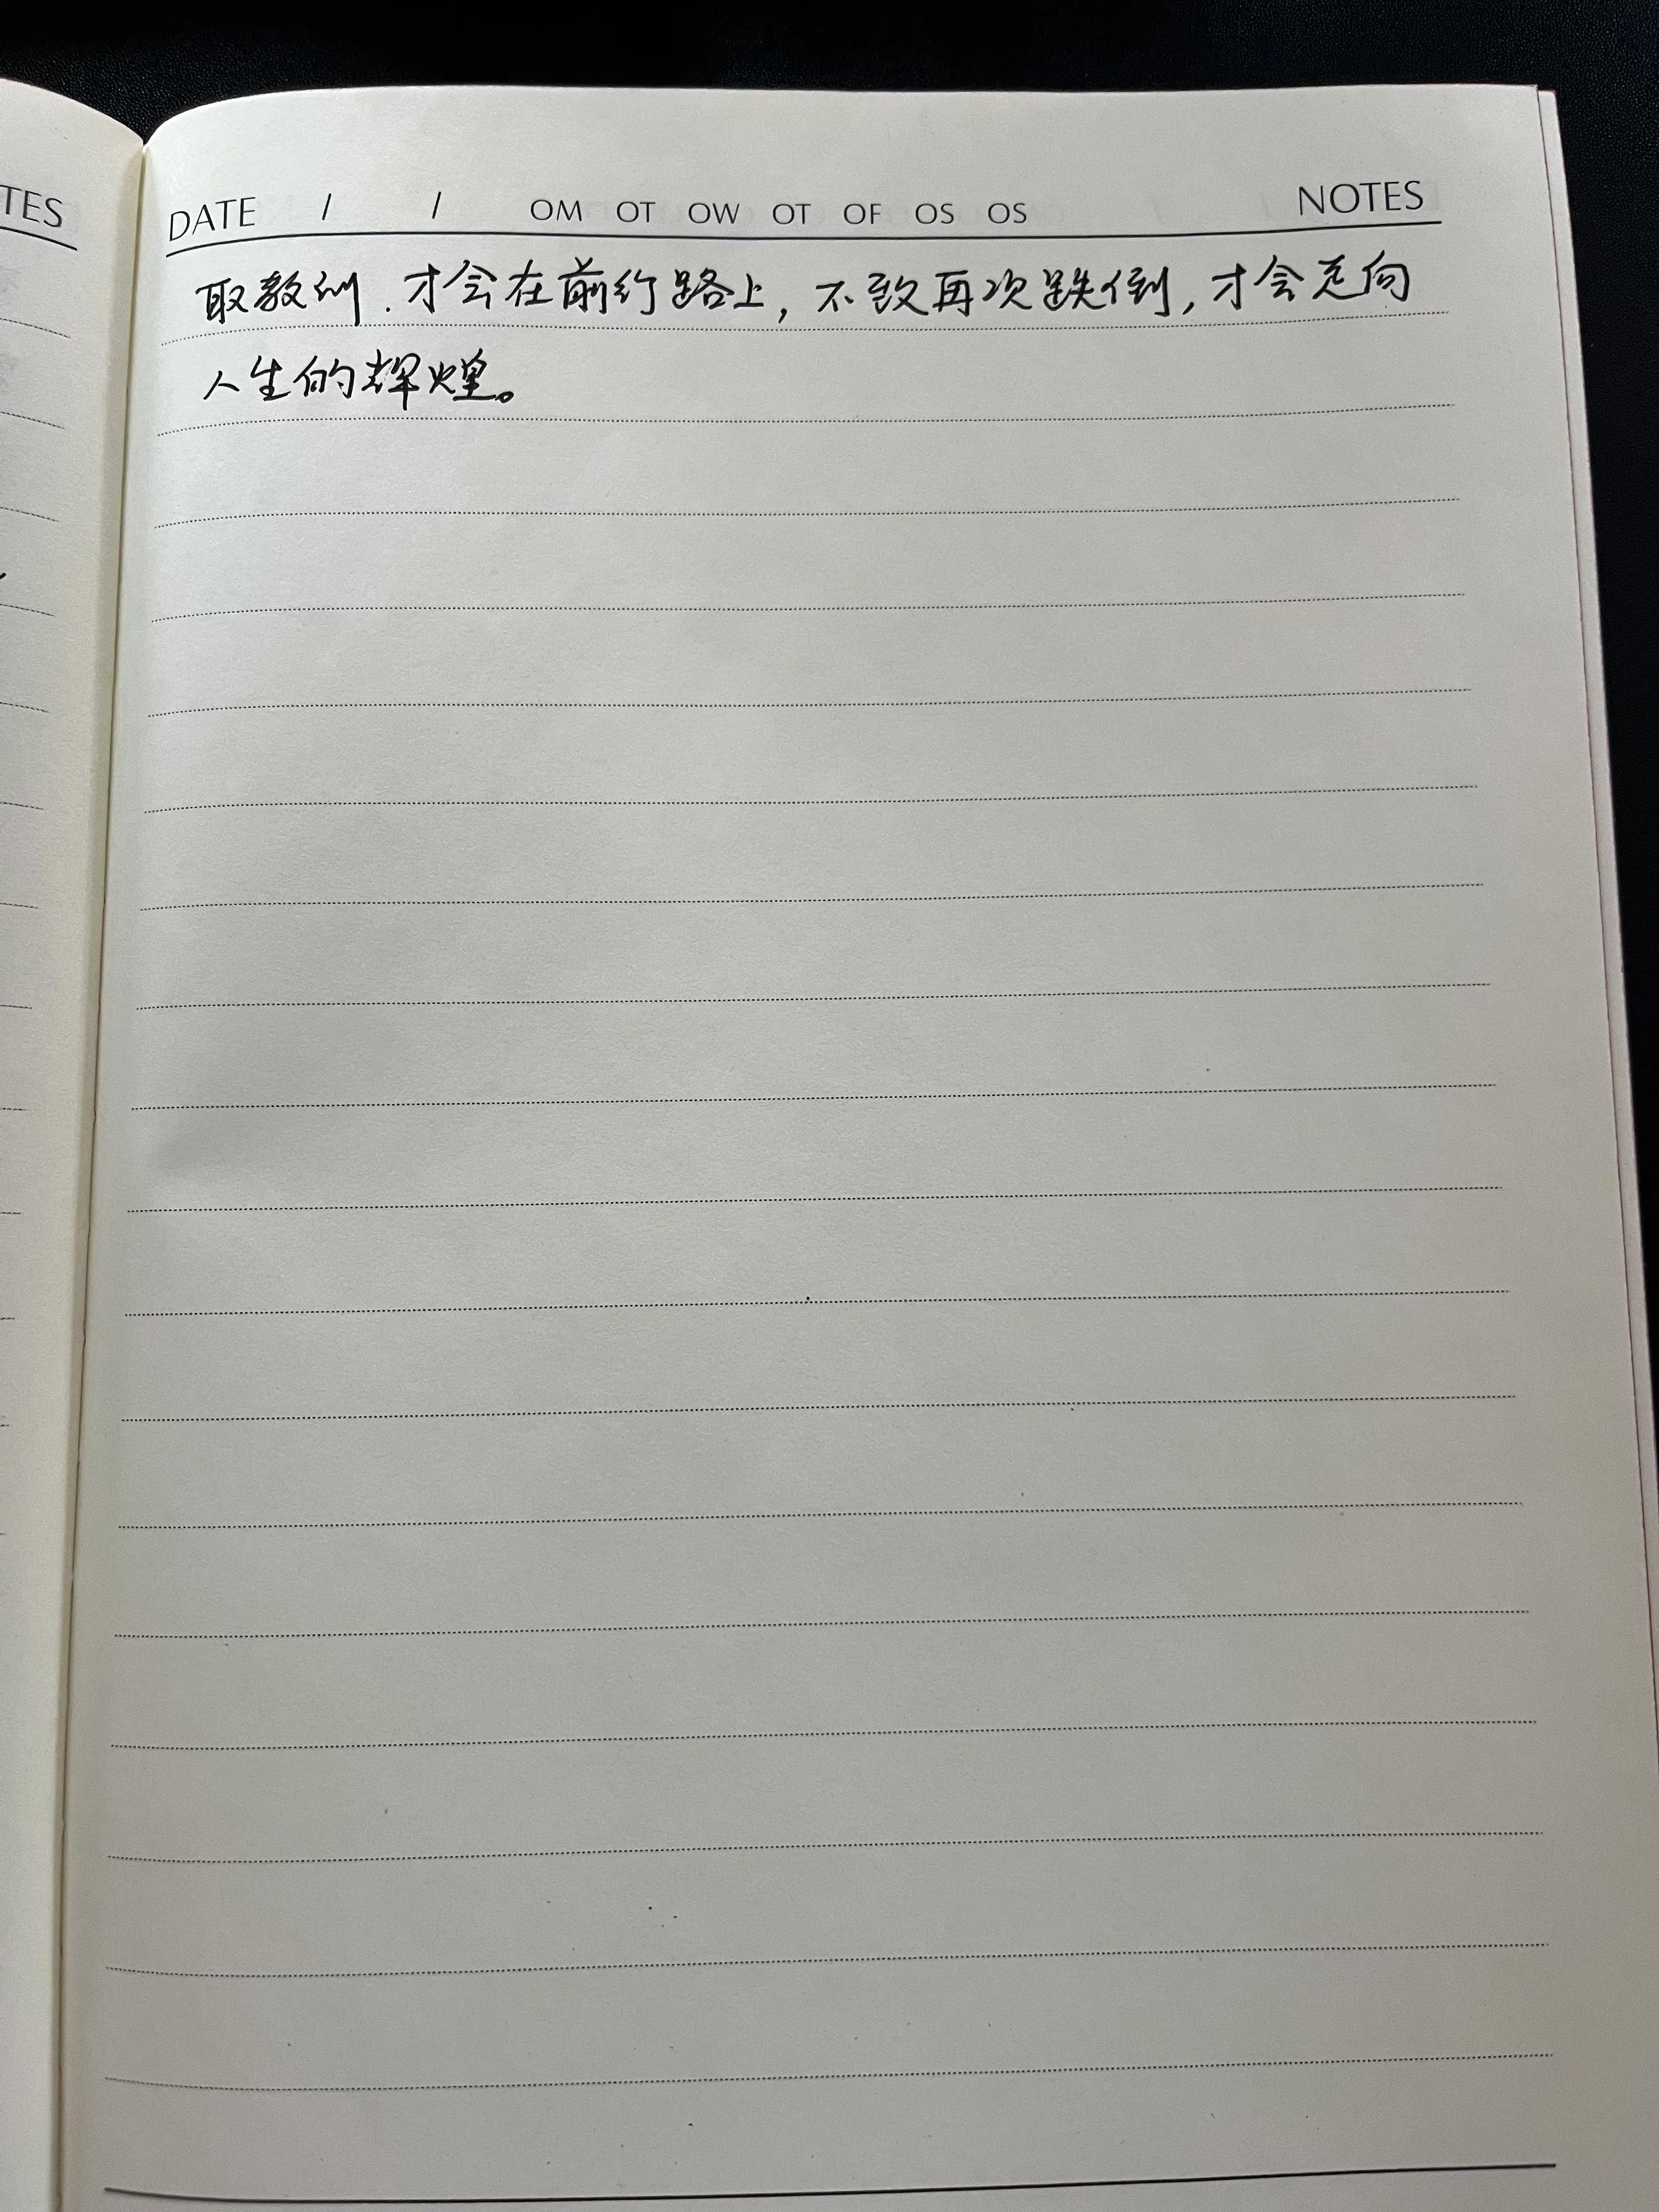 TES
DATE / / OM OT OW OT OF OS OS NOTES
取教训.才会在前行路上,不致再次跌倒,才会走向
人生的辉煌。